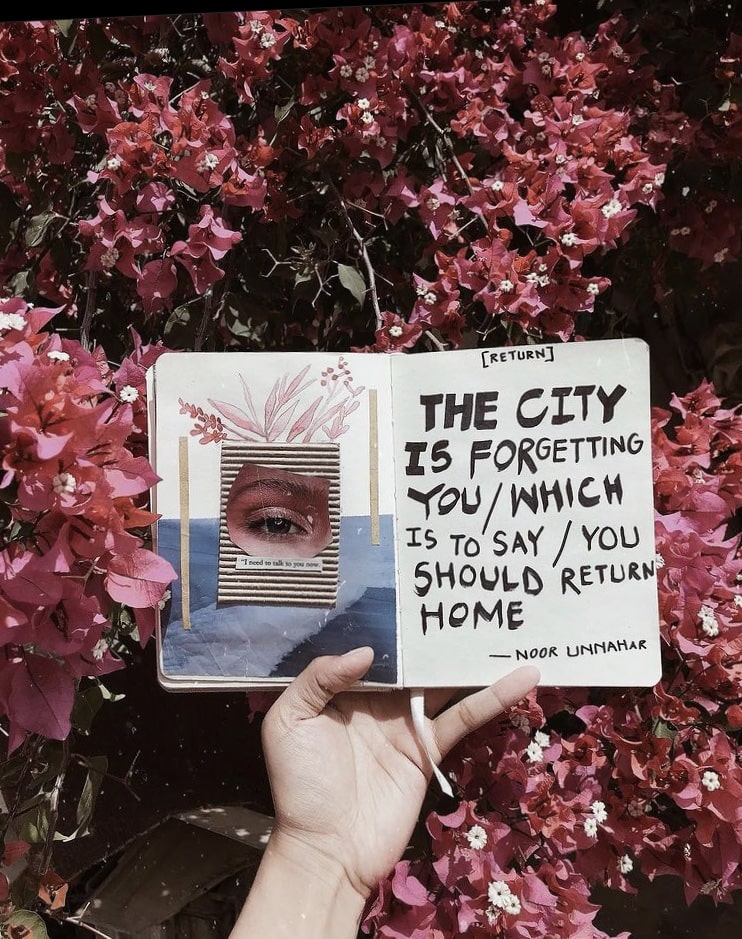 "I need to talk to you now.
[RETURN]
THE CITY
IS FORGETTING
YOU/WHICH
IS TO SAY/YOU
SHOULD RETURN
HOME
— NOOR UNNAHAR